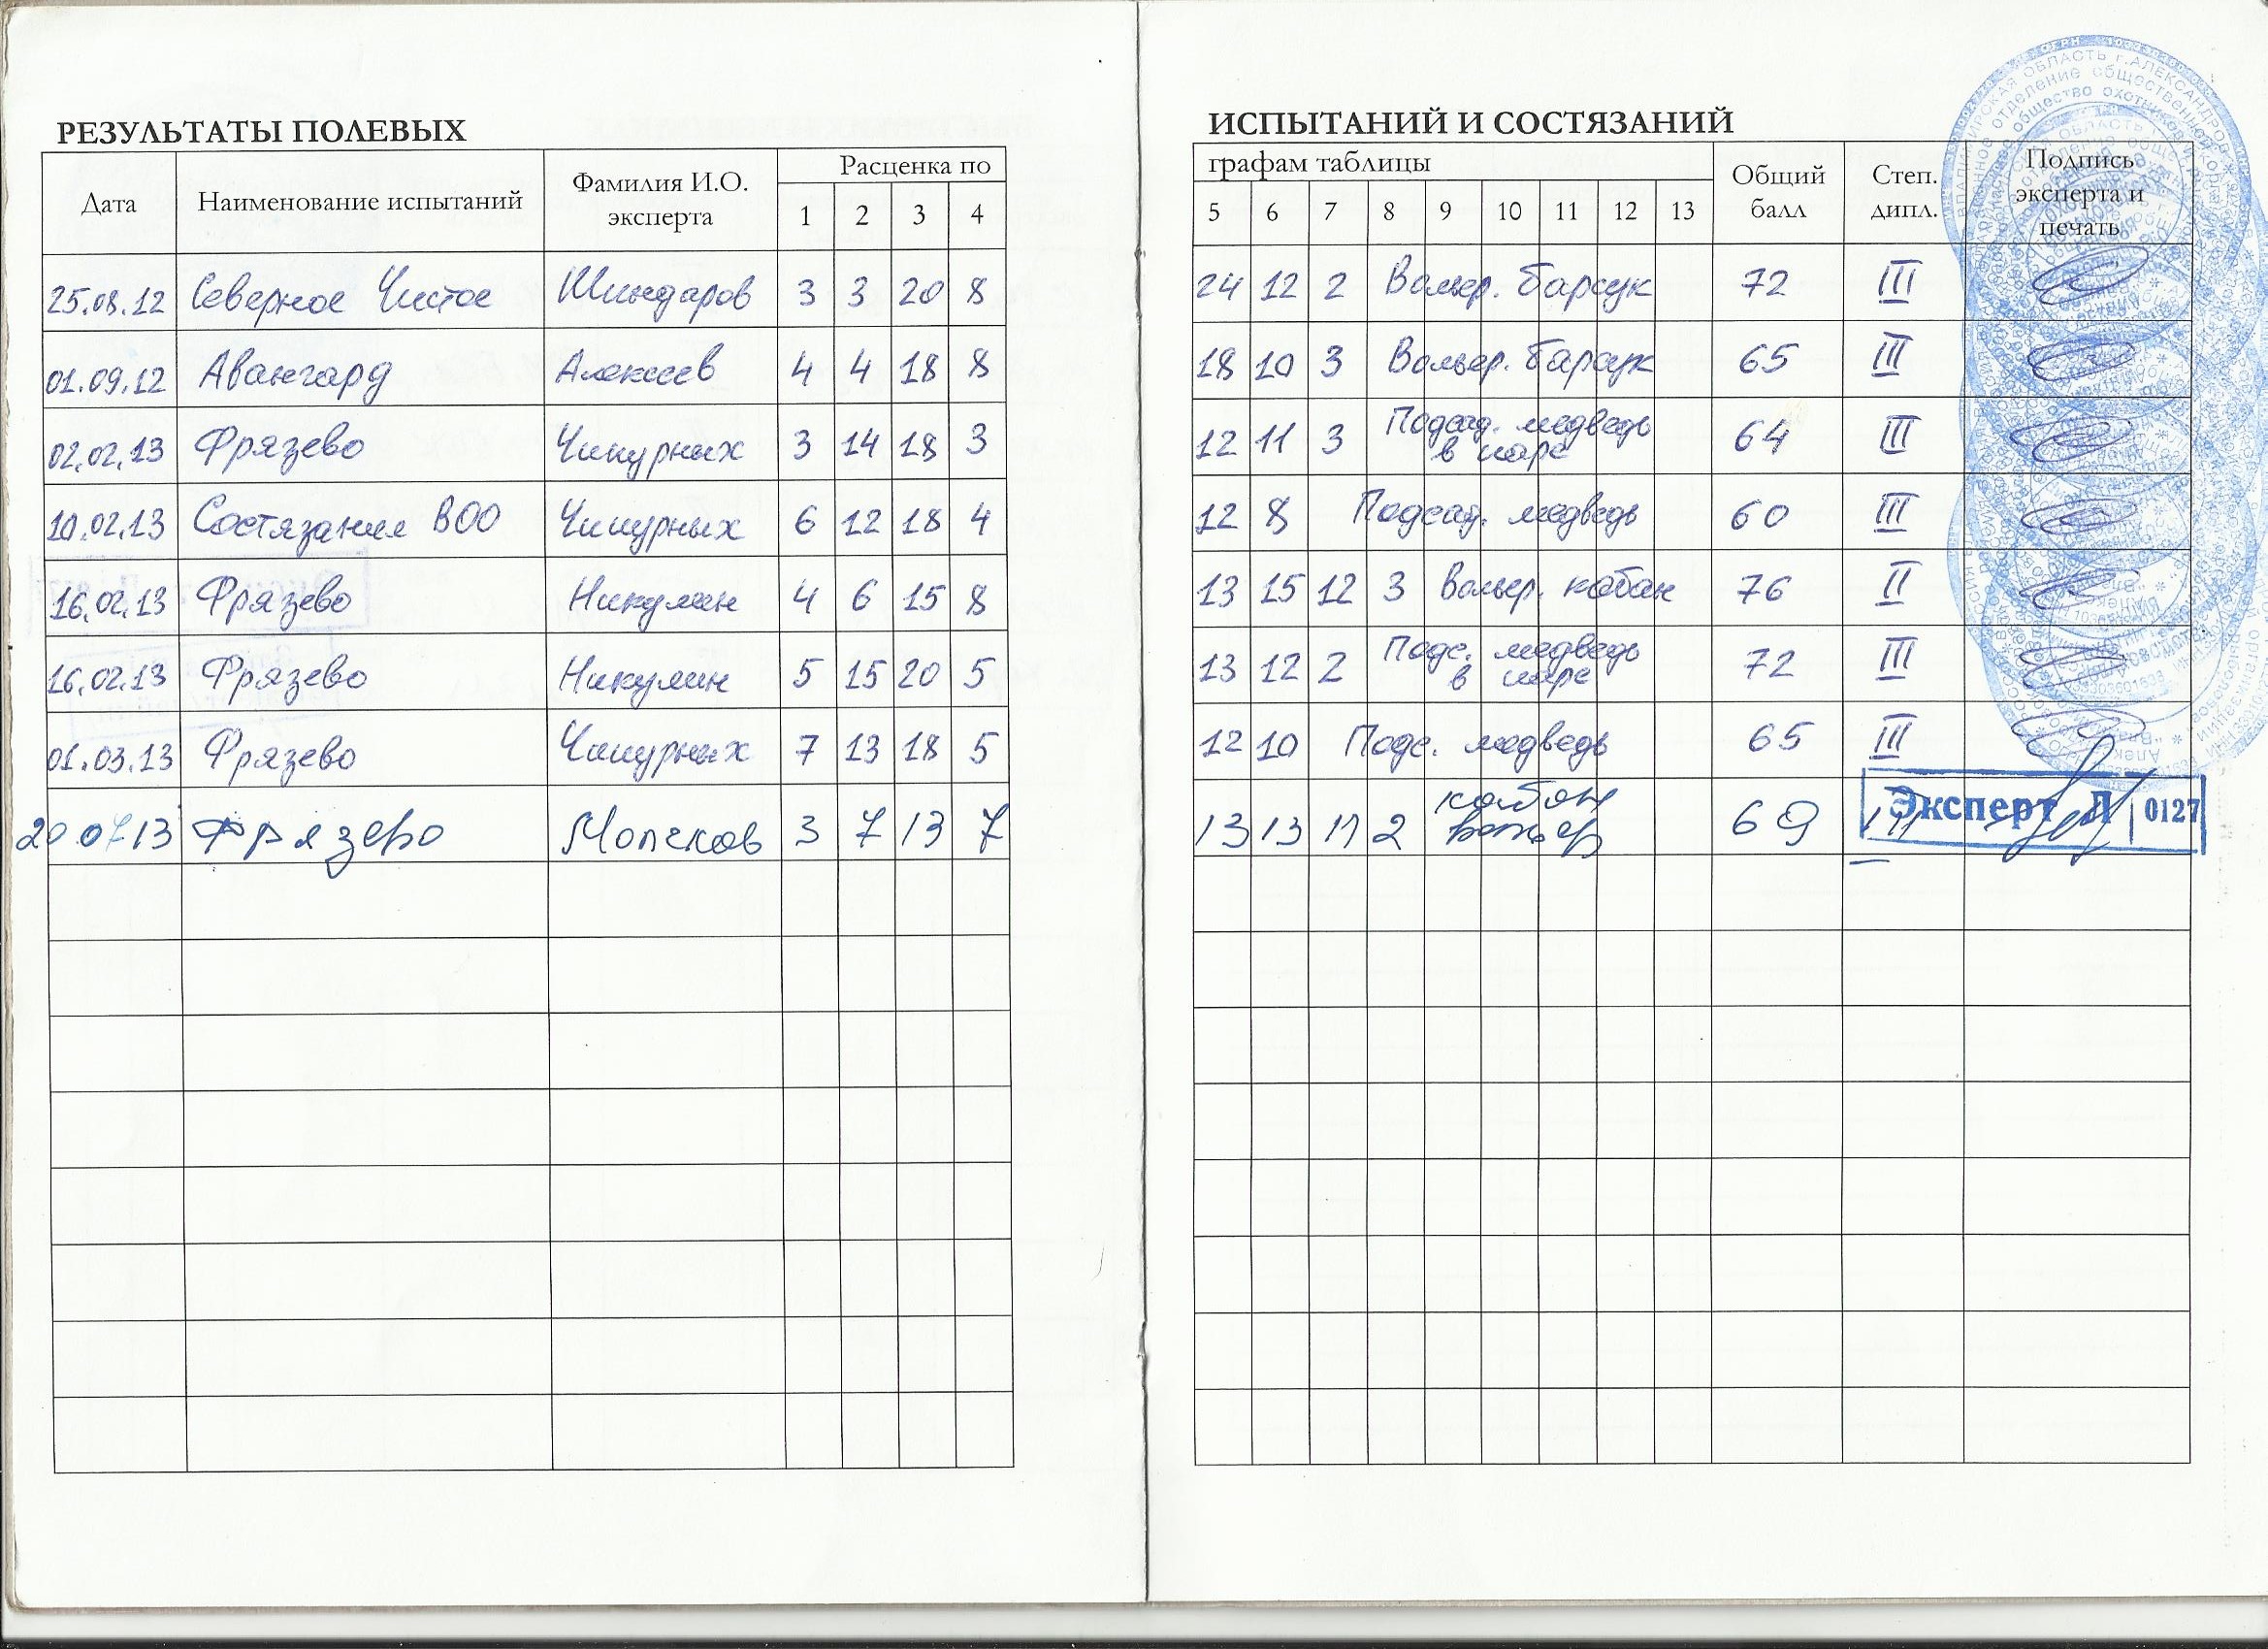 РЕЗУЛЬТАТЫ ПОЛЕВЫХ
Дата Наименование испытаний Фамилия И.О. эксперта Расценка по
1 2 3 4
25.08.12 Северное Чистое Шиндаров 3 3 20 8
01.09.12 Авангард Алексеев 4 4 18 8
02.02.13 Фрязево Чипурных 3 14 18 3
10.02.13 Состязания ВОО Чипурных 6 12 18 4
16.02.13 Фрязево Никулин 4 6 15 8
16.02.13 Фрязево Никулин 5 15 20 5
01.03.13 Фрязево Чипурных 7 13 18 5
20 07 13 Фрязево 3 7 13 7
ИСПЫТАНИЙ И СОСТЯЗАНИЙ
графам таблицы Общий балл Степ. дипл. Подпись эксперта и печать
5 6 7 8 9 10 11 12 13
24 12 2 Вольер. барсук 72 III
18 10 3 Вольер. барсук 65 III
12 11 3 Подсад. медведь в паре 64 III
12 8 Подсад. медведь 60 III
13 15 12 3 Вольер. кабан 76 II
13 12 2 Подс. медведь в паре 72 III
12 10 Подс. медведь 65 III
13 13 11 2 кабан вольер 69 III
Эксперт Л 0127